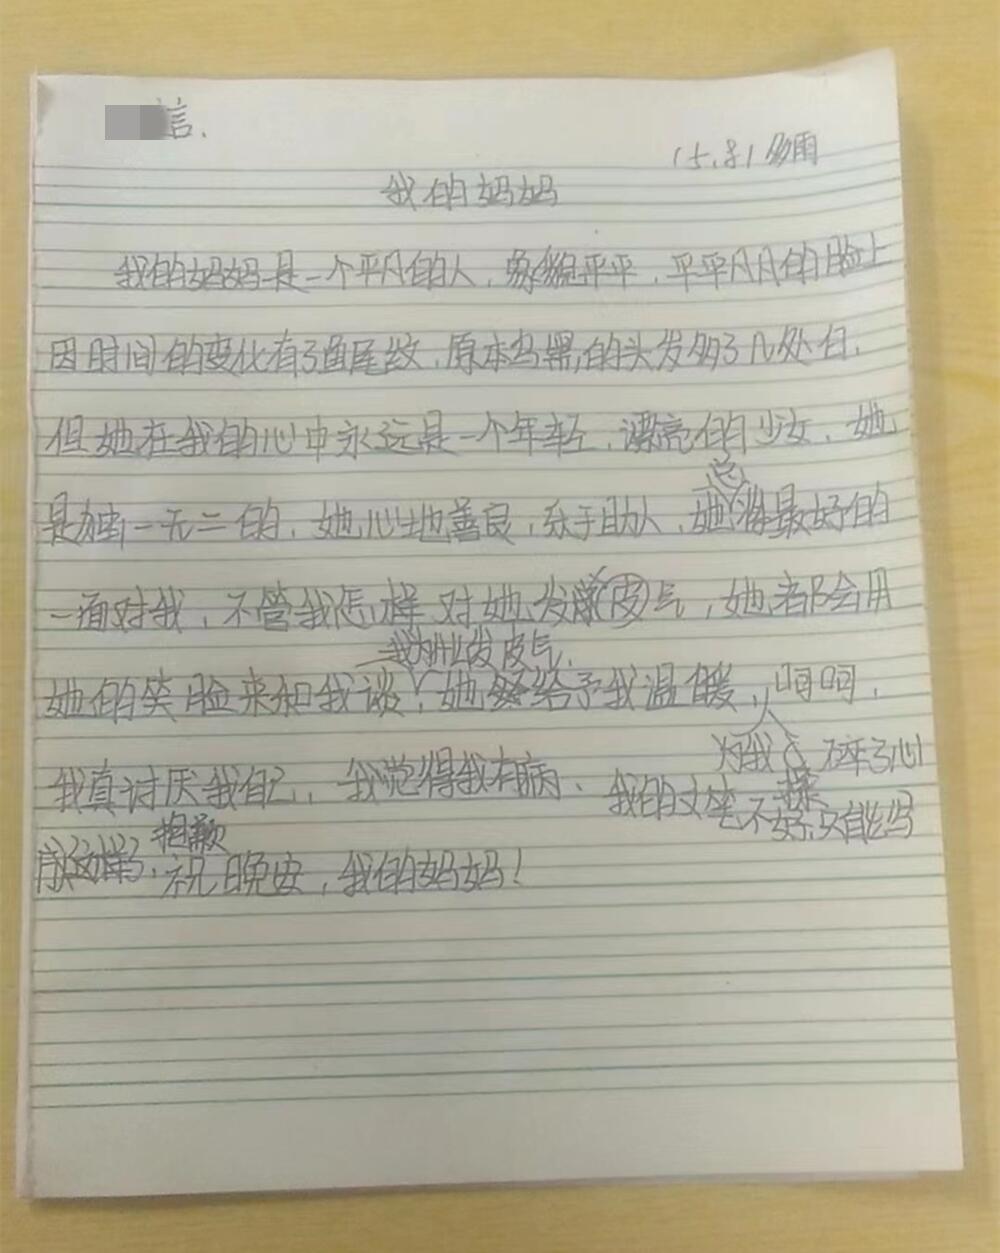 言.
15.31 多雨
我的妈妈
我的妈妈是一个平凡的人，象貌平平，平平凡凡的脸上
因时间的变化有了鱼尾纹，原本乌黑的头发多了几处白.
但她在我的心中永远是一个年轻，漂亮的少女，她
总
是独一无二的，她心地善良，乐于助人，她将最好的
一面对我，不管我怎样对她发皮气，她都会用
我为什么发皮气.
她的笑脸来和我谈，她给予我温暖，呵呵.
为我 碎了心
我真讨厌我自己，我觉得我有病、我的文
不好只能写
抱歉
成这样了，祝晚安，我的妈妈！